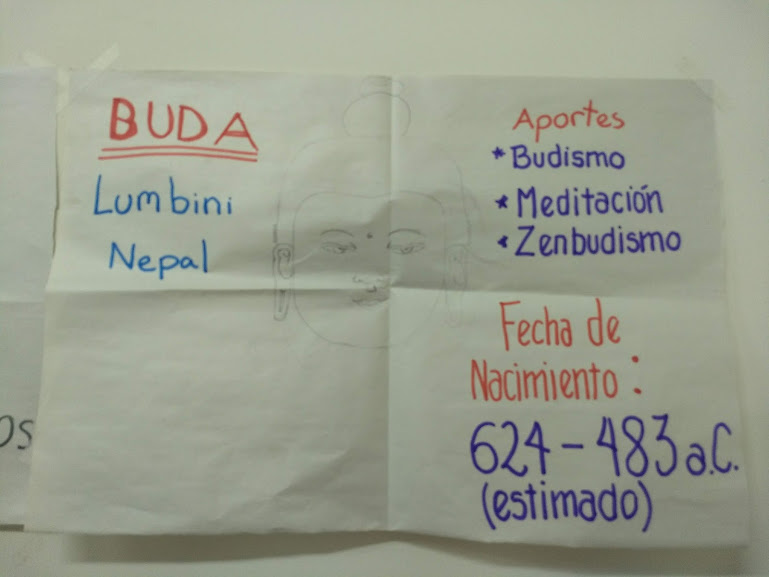 BUDA
Lumbini
Nepal
Aportes
* Budismo
* Meditación
* Zenbudismo
Fecha de
Nacimiento:
624-483 a.C.
(estimado)
OS